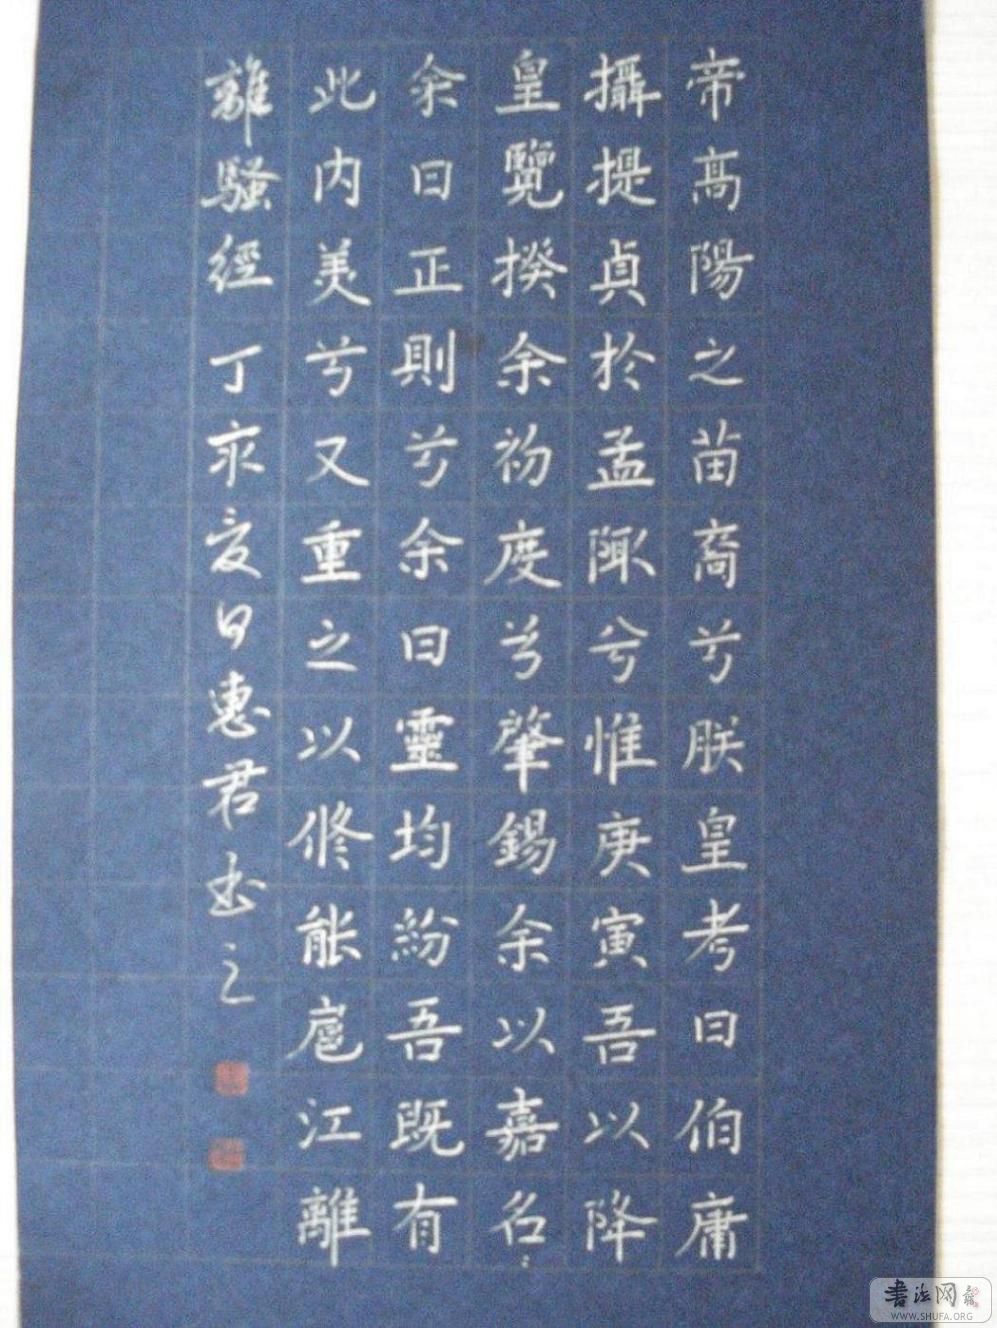 帝高陽之苗裔兮朕皇考曰伯庸
攝提貞於孟陬兮惟庚寅吾以降
皇覽揆余初度兮肇錫余以嘉名
余曰正則兮余曰靈均紛吾既有
此内美兮又重之以脩能扈江離
離騷經丁亥夏日惠君书之
書法网
WWW.SHUFA.ORG